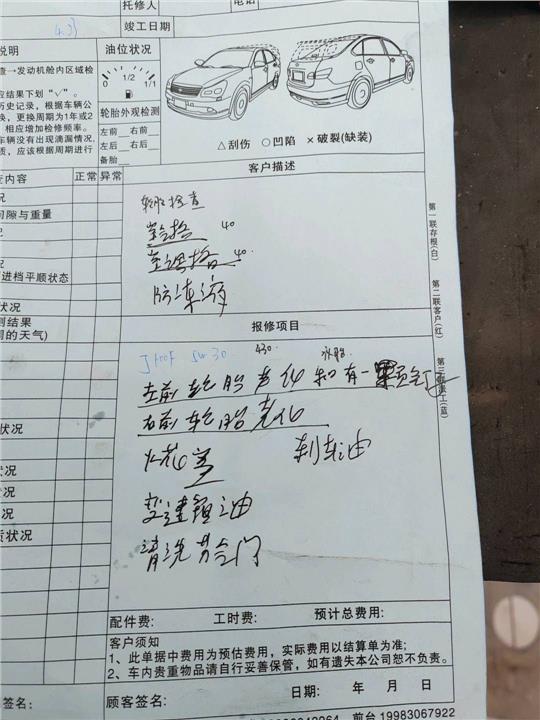 托修人
电话
竣工日期
4.3
说明
油位状况
查→发动机舱内区域检
0 1/2 1/1
应结果下划“√”。
历史记录，根据车辆公
换，更换周期为1年或2
相应增加检修频率。
车辆没有出现滴漏情况，
质，应该根据周期进行
轮胎外观检测
左前 右前
左后 右后
备胎
△刮伤 ○凹陷 ×破裂(缺装)
查内容 正常 异常
客户描述
况
间隙与重量
况
进档平顺状态
状况
测结果
周的天气)
状况
况
况
状况
质状况
轮胎检查
40
40
防冻液
第一联存根(白)
第二联客户(红)
报修项目
5W30
左前轮胎老化和有一颗钉
右前轮胎老化
火花塞 刹车油
变速箱油
清洗节气门
配件费: 工时费: 预计总费用:
客户须知
1、此单据中费用为预估费用，实际费用以结算单为准;
2、车内贵重物品请自行妥善保管，如有遗失本公司恕不负责。
签名: 顾客签名: 日期: 年 月 日
前台 19983067922